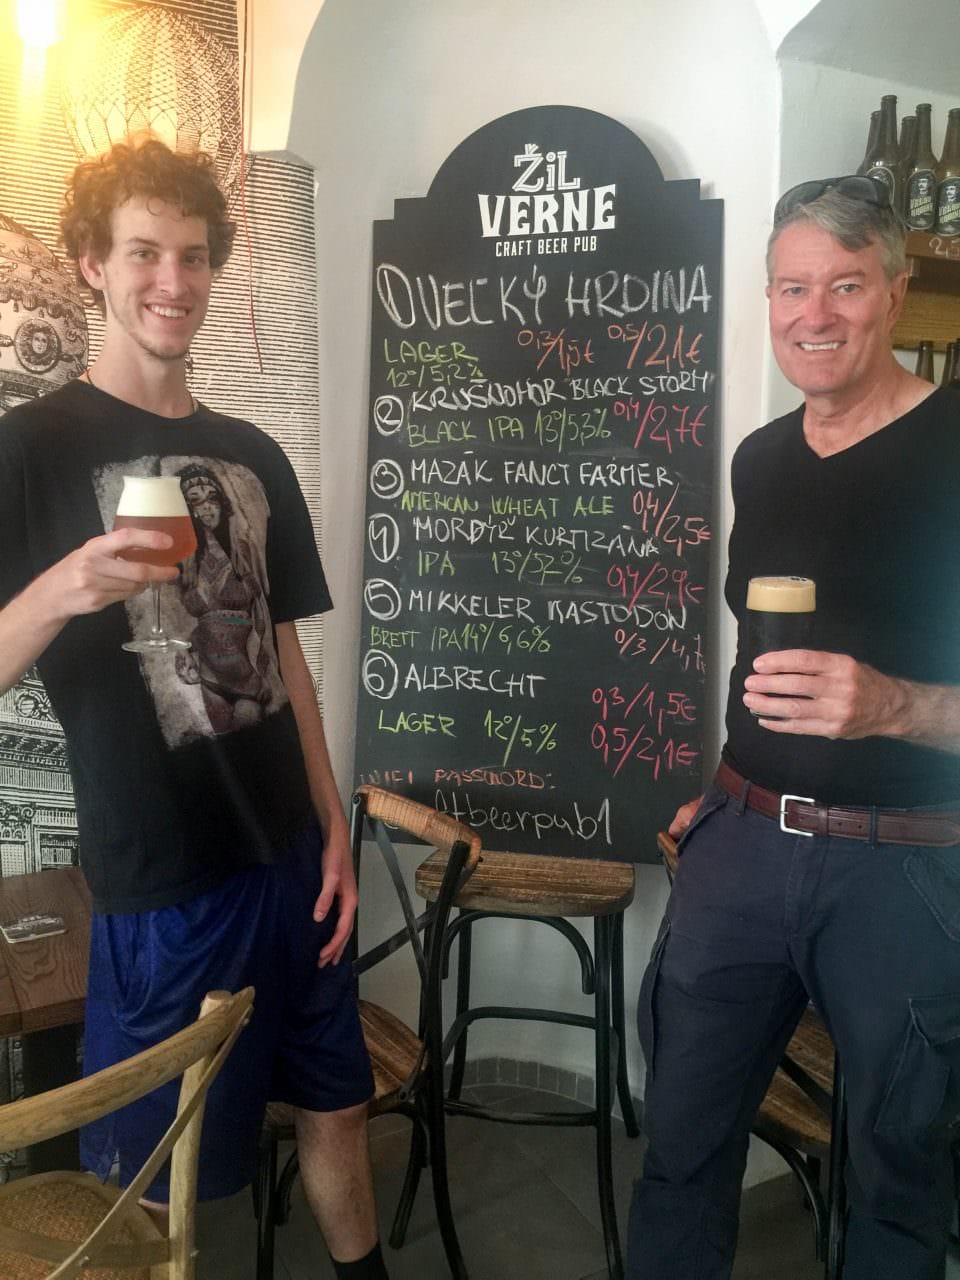 ŽiL
VERNE
CRAFT BEER PUB
① VEĽKÝ HRDINA
LAGER 0,3/1,5€ 0,5/2,1€
12°/5,2%
② KRUŠNOHOR BLACK STORM
BLACK IPA 13°/5,3% 0,4/2,7€
③ MAZÁK FANCY FARMER
AMERICAN WHEAT ALE 0,4/2,5€
④ MORDÝŘ KURTIZÁNA
IPA 13°/5,2% 0,4/2,9€
⑤ MIKKELER MASTODON
BRETT IPA 14°/6,6% 0/3/4,7
⑥ ALBRECHT
0,3/1,5€
LAGER 12°/5% 0,5/2,1€
WIFI PASSWORD:
ftbeerpub1